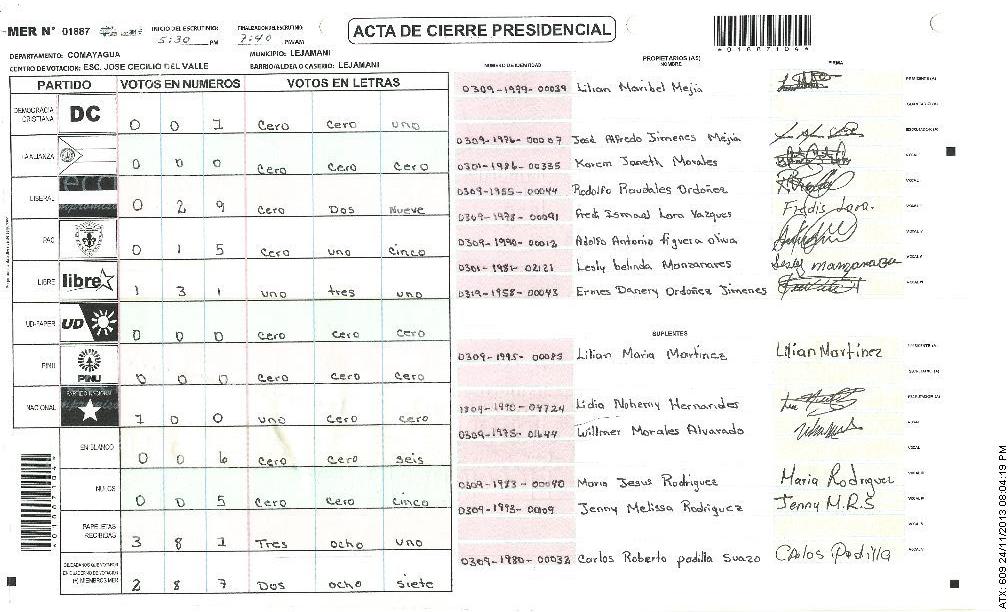 MER N° 01887 INICIO DEL ESCRUTINIO: 5:30 PM FINALIZACION ESCRUTINIO: 7:40 PM/AM ACTA DE CIERRE PRESIDENCIAL
DEPARTAMENTO: COMAYAGUA MUNICIPIO: LEJAMANI
CENTRO DE VOTACION: ESC. JOSE CECILIO DEL VALLE BARRIO/ALDEA O CASERIO: LEJAMANI
PARTIDO VOTOS EN NUMEROS VOTOS EN LETRAS
DEMOCRACIA CRISTIANA DC 0 0 1 cero cero uno
LA ALIANZA 0 0 0 cero cero cero
LIBERAL 0 2 9 cero Dos Nueve
PAC 0 1 5 cero uno cinco
LIBRE libre 1 3 1 uno tres uno
UD-FAPER UD 0 0 0 cero cero cero
PINU PINU 0 0 0 cero cero cero
NACIONAL PARTIDO NACIONAL 1 0 0 uno cero cero
EN BLANCO 0 0 6 cero cero seis
NULOS 0 0 5 cero cero cinco
PAPELETAS RECIBIDAS 3 8 1 Tres ocho uno
2 8 7 Dos ocho siete
NUMERO DE IDENTIDAD PROPIETARIOS (AS) NOMBRE FIRMA
0309-1989-00039 Lilian Maribel Mejia PRESIDENTE (A)
SECRETARIO (A)
0309-1976-00007 José Alfredo Jimenes Mejia ESCRUTADOR (A)
0301-1986-00335 Karem Janeth Morales VOCAL I
0309-1955-00044 Rodolfo Raudales Ordoñez
0309-1978-00091 Fredi Ismael Lora Vazques Fredis Lora.
0309-1990-00012 Adolfo Antonio figuera oliva
0301-1981-02121 Lesly belinda Manzanares Lesly manzanares
0319-1958-00043 Ermes Danery Ordoñez Jimenes
SUPLENTES
0309-1995-00085 Lilian Maria Martinez Lilian Martínez PRESIDENTE (A)
SECRETARIO (A)
Lidia Nohemy Hernandes ESCRUTADOR (A)
0309-1975-01644 Willmer Morales Alvarado
0309-1983-00040 Maria Jesus Rodriguez Maria Rodriguez
Jenny Melissa Rodriguez Jenny M.R.S
0309-1980-00032 Carlos Roberto padilla suazo Carlos Padilla
A01887104A
ATX: 609 24/11/2013 08:04:19 PM